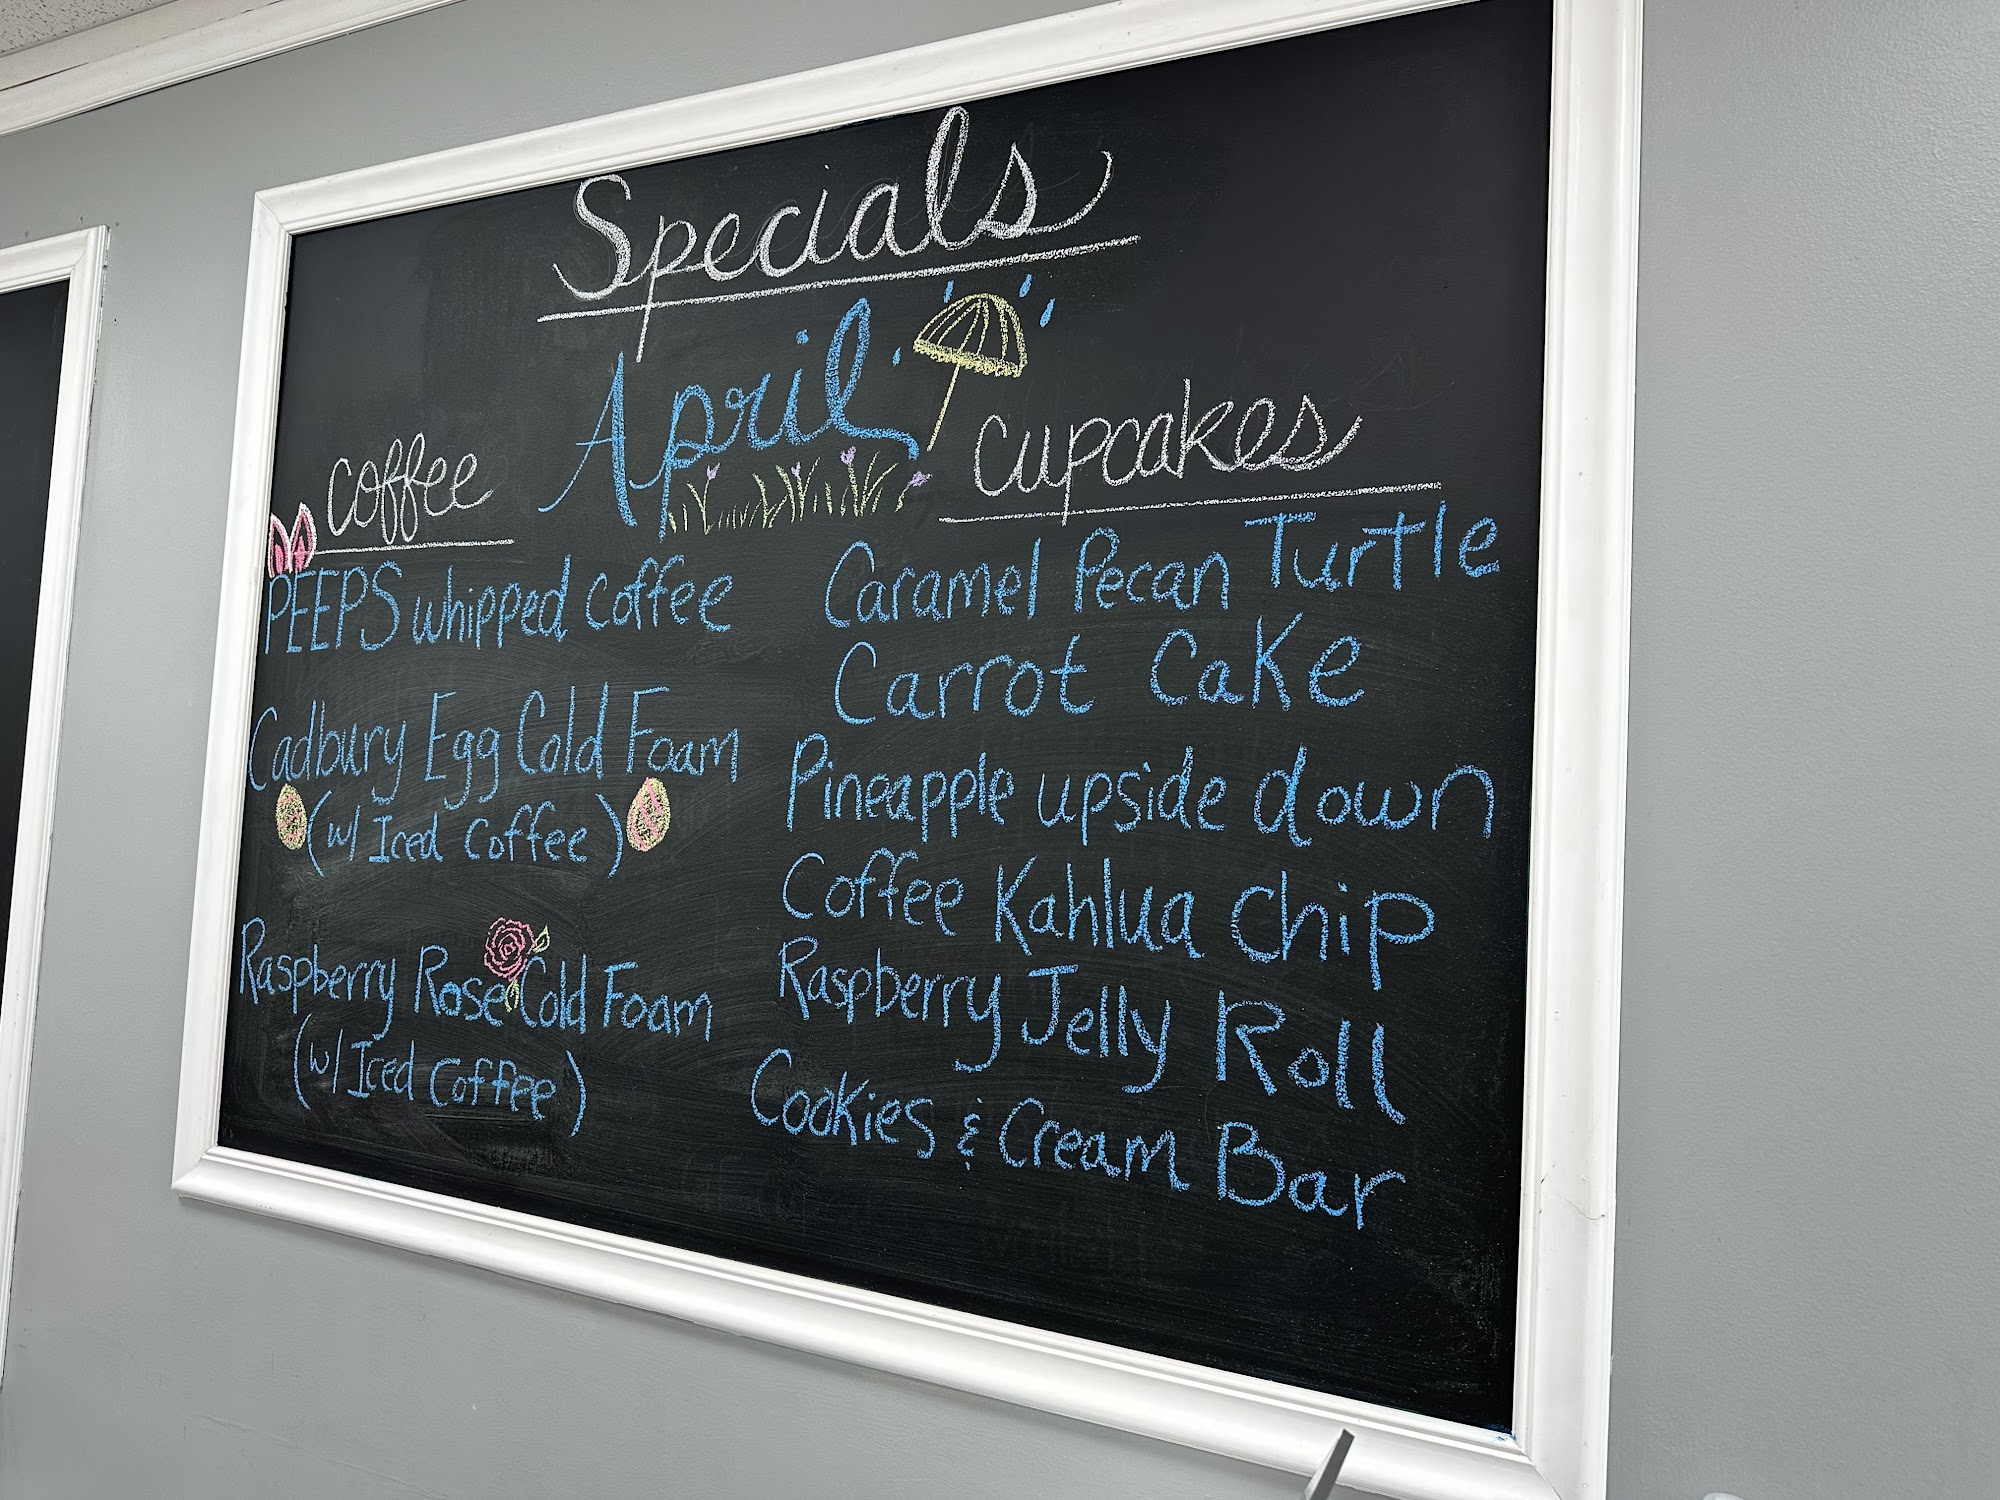 Specials
April
Coffee
PEEPS whipped coffee
Cadbury Egg Cold Foam
(w/ Iced Coffee)
Raspberry Rose Cold Foam
(w/ Iced Coffee)
Cupcakes
Caramel Pecan Turtle
Carrot Cake
Pineapple upside down
Coffee Kahlua Chip
Raspberry Jelly Roll
Cookies & Cream Bar